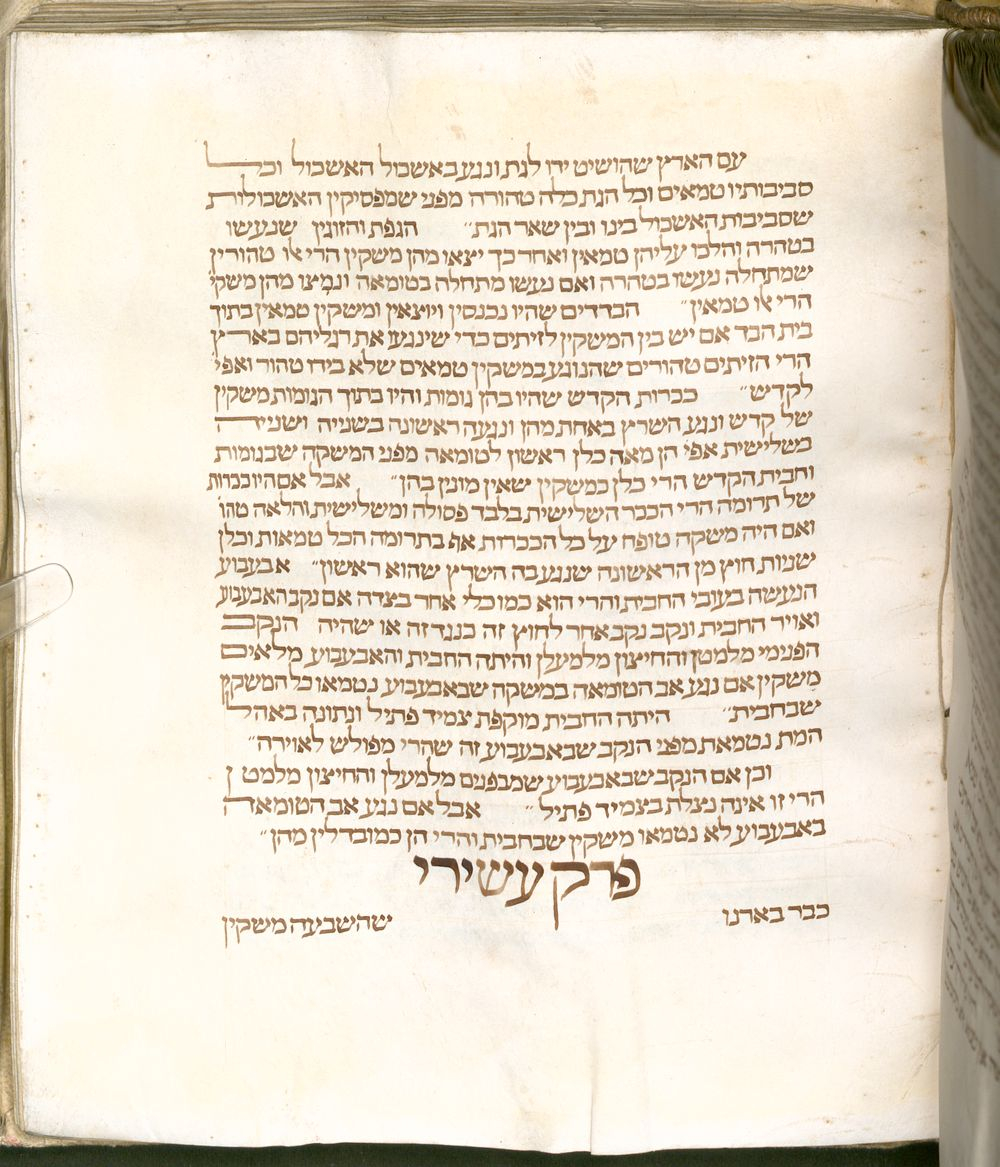 עם הארץ שהושיט ידו לגת ונגע באשכול האשכול וכל
סביבותיו טמאים וכל הגת כלה טהורה מפני שמפסיקין האשכולות
שסביבות האשכול בינו ובין שאר הגת״ הגפת והזוגין שנעשו
בטהרה והלכו עליהן טמאין ואחר כך יצאו מהן משקין הרי אלו טהורין
שמתחלה נעשו בטהרה ואם נעשו מתחלה בטומאה ונמצו מהן משקי
הרי אלו טמאין״ הבדדים שהיו נכנסין ויוצאין ומשקין טמאין בתוך
בית הבד אם יש בין המשקין לזיתים כדי שינגעו את רגליהם בארץ
הרי הזיתים טהורים שהנוגע במשקין טמאים שלא בידו טהור ואפי׳
לקדש״ ככרות הקדש שהיו בהן גומות והיו בתוך הגומות משקין
של קדש ונגע השרץ באחת מהן ונגעה ראשונה בשניה ושניה
בשלישית אפי׳ הן מאה כלן ראשון לטומאה מפני המשקה שבגומות
וחבית הקדש הרי כלן כמשקין שאין מונין בהן״ אבל אם היו ככרות
של תרומה הרי הככר השלישית בלבד פסולה ומשלישית והלאה טהו׳
ואם היה משקה טופח על כל הככרות אף בתרומה הכל טמאות וכלן
שניות חוץ מן הראשונה שנגע בה השרץ שהוא ראשון״ אבעבוע
הנעשה בעובי החבית והרי הוא כמו כלי אחר בצדה אם נקב האבעבוע
ואויר החבית ונקב נקב אחר לחוץ זה כנגד זה או שהיה הנקב
הפנימי מלמטן והחיצון מלמעלן והיתה החבית והאבעבוע מלאים
משקין אם נגע אב הטומאה במשקה שבאבעבוע נטמאו כל המשקין
שבחבית״ היתה החבית מוקפת צמיד פתיל ונתונה באהל
המת נטמאת מפני הנקב שבאבעבוע זה שהרי מפולש לאוירה״
וכן אם הנקב שבאבעבוע שמבפנים מלמעלן והחיצון מלמטן
הרי זו אינה ניצלת בצמיד פתיל״ אבל אם נגע אב הטומאה
באבעבוע לא נטמאו משקין שבחבית והרי הן כמובדלין מהן״
פרק עשירי
כבר בארנו שהשבעה משקין